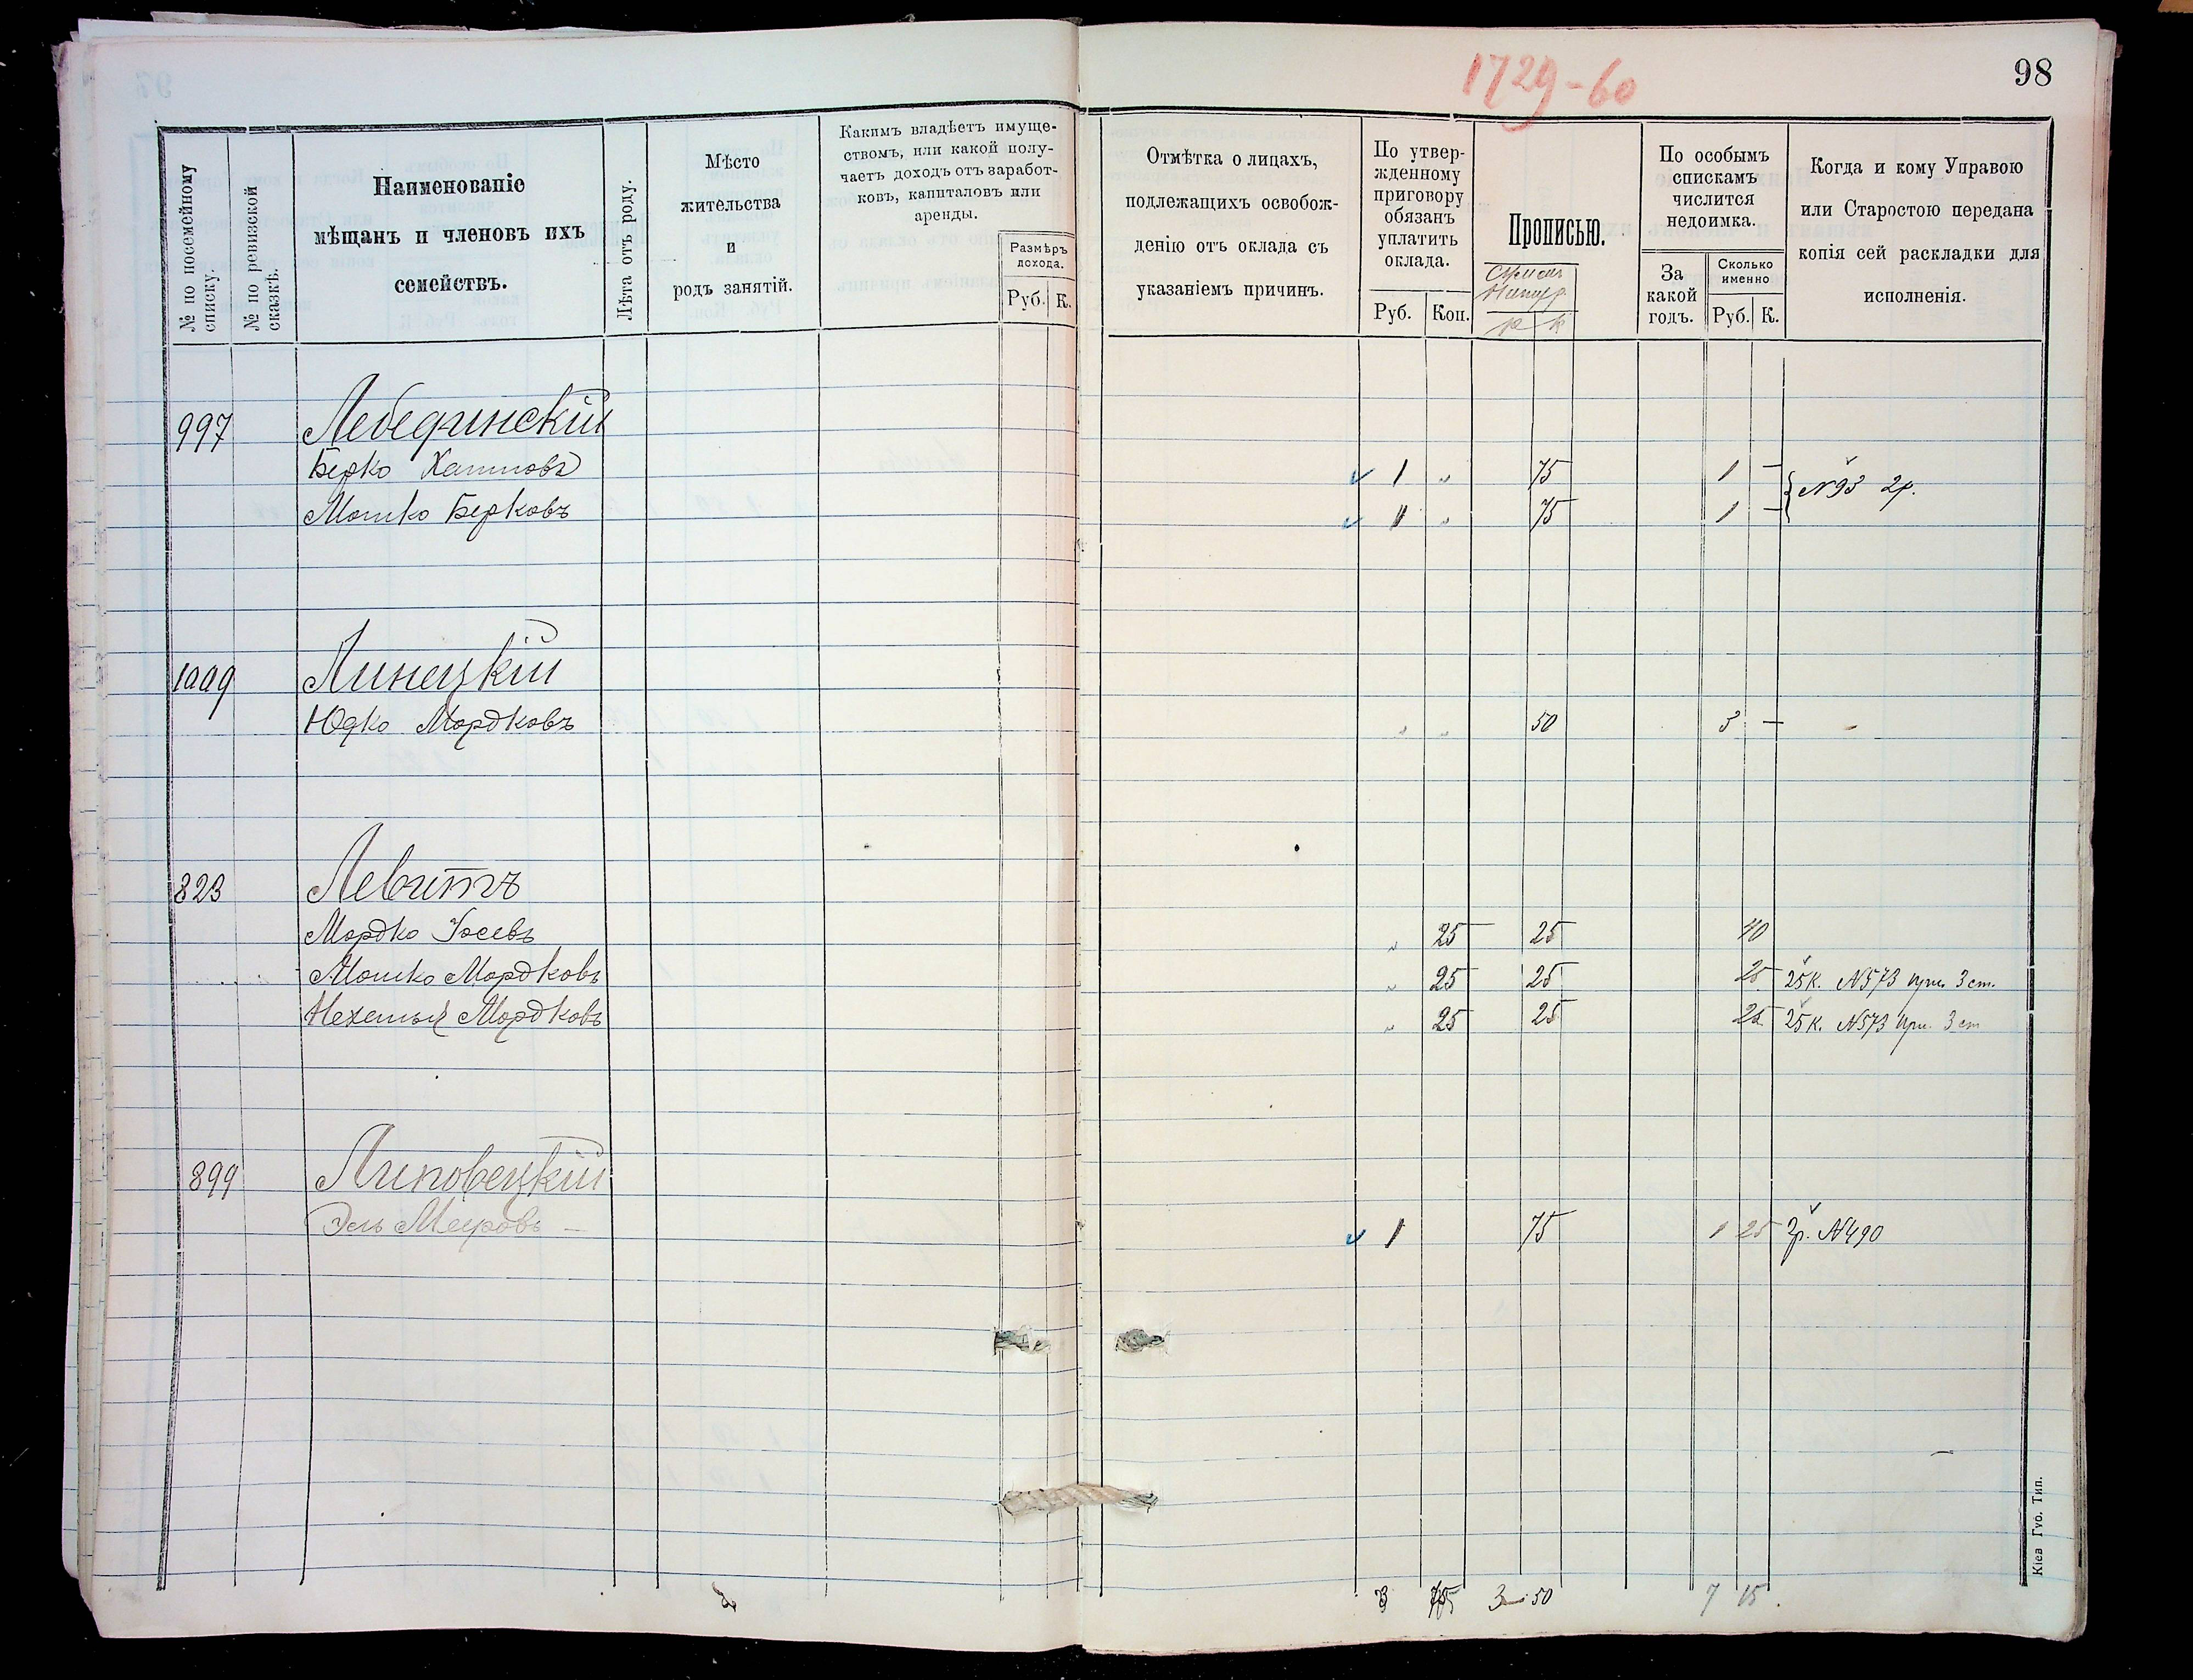 1729-60
98
№ по посемейному списку.
№ по ревизской сказкѣ.
Наименованіе
мѣщанъ и членовъ ихъ
семействъ.
Лѣта отъ роду.
Мѣсто
жительства
и
родъ занятій.
Какимъ владѣетъ имуще-
ствомъ, или какой полу-
чаетъ доходъ отъ заработ-
ковъ, капиталовъ или
аренды.
Размѣръ
дохода.
Руб. К.
Отмѣтка о лицахъ,
подлежащихъ освобож-
денію отъ оклада съ
указаніемъ причинъ.
По утвер-
жденному
приговору
обязанъ
уплатить
оклада.
Руб. Коп.
Прописью.
р к
По особымъ
спискамъ
числится
недоимка.
За
какой
годъ.
Сколько
именно
Руб. К.
Когда и кому Управою
или Старостою передана
копія сей раскладки для
исполненія.
997 Лебединскій
Берко Хаимовъ 1 „ 75 1 — №93 2р.
Мошко Берковъ 1 „ 75 1 —
1009 Линецкій
Юдко Мордковъ „ „ 50 3 —
823 Левитъ
Мордко Іосевъ „ 25 25 40
Мошко Мордковъ „ 25 25 25 25к. №573 при. 3 ст.
Нехемья Мордковъ „ 25 25 25 25к. №573 при. 3 ст
899 Липовецкій
Эль Меировъ — 1 75 1 25 3р. №490
3 75 3—50 7 15.
Кіев Губ. Тип.